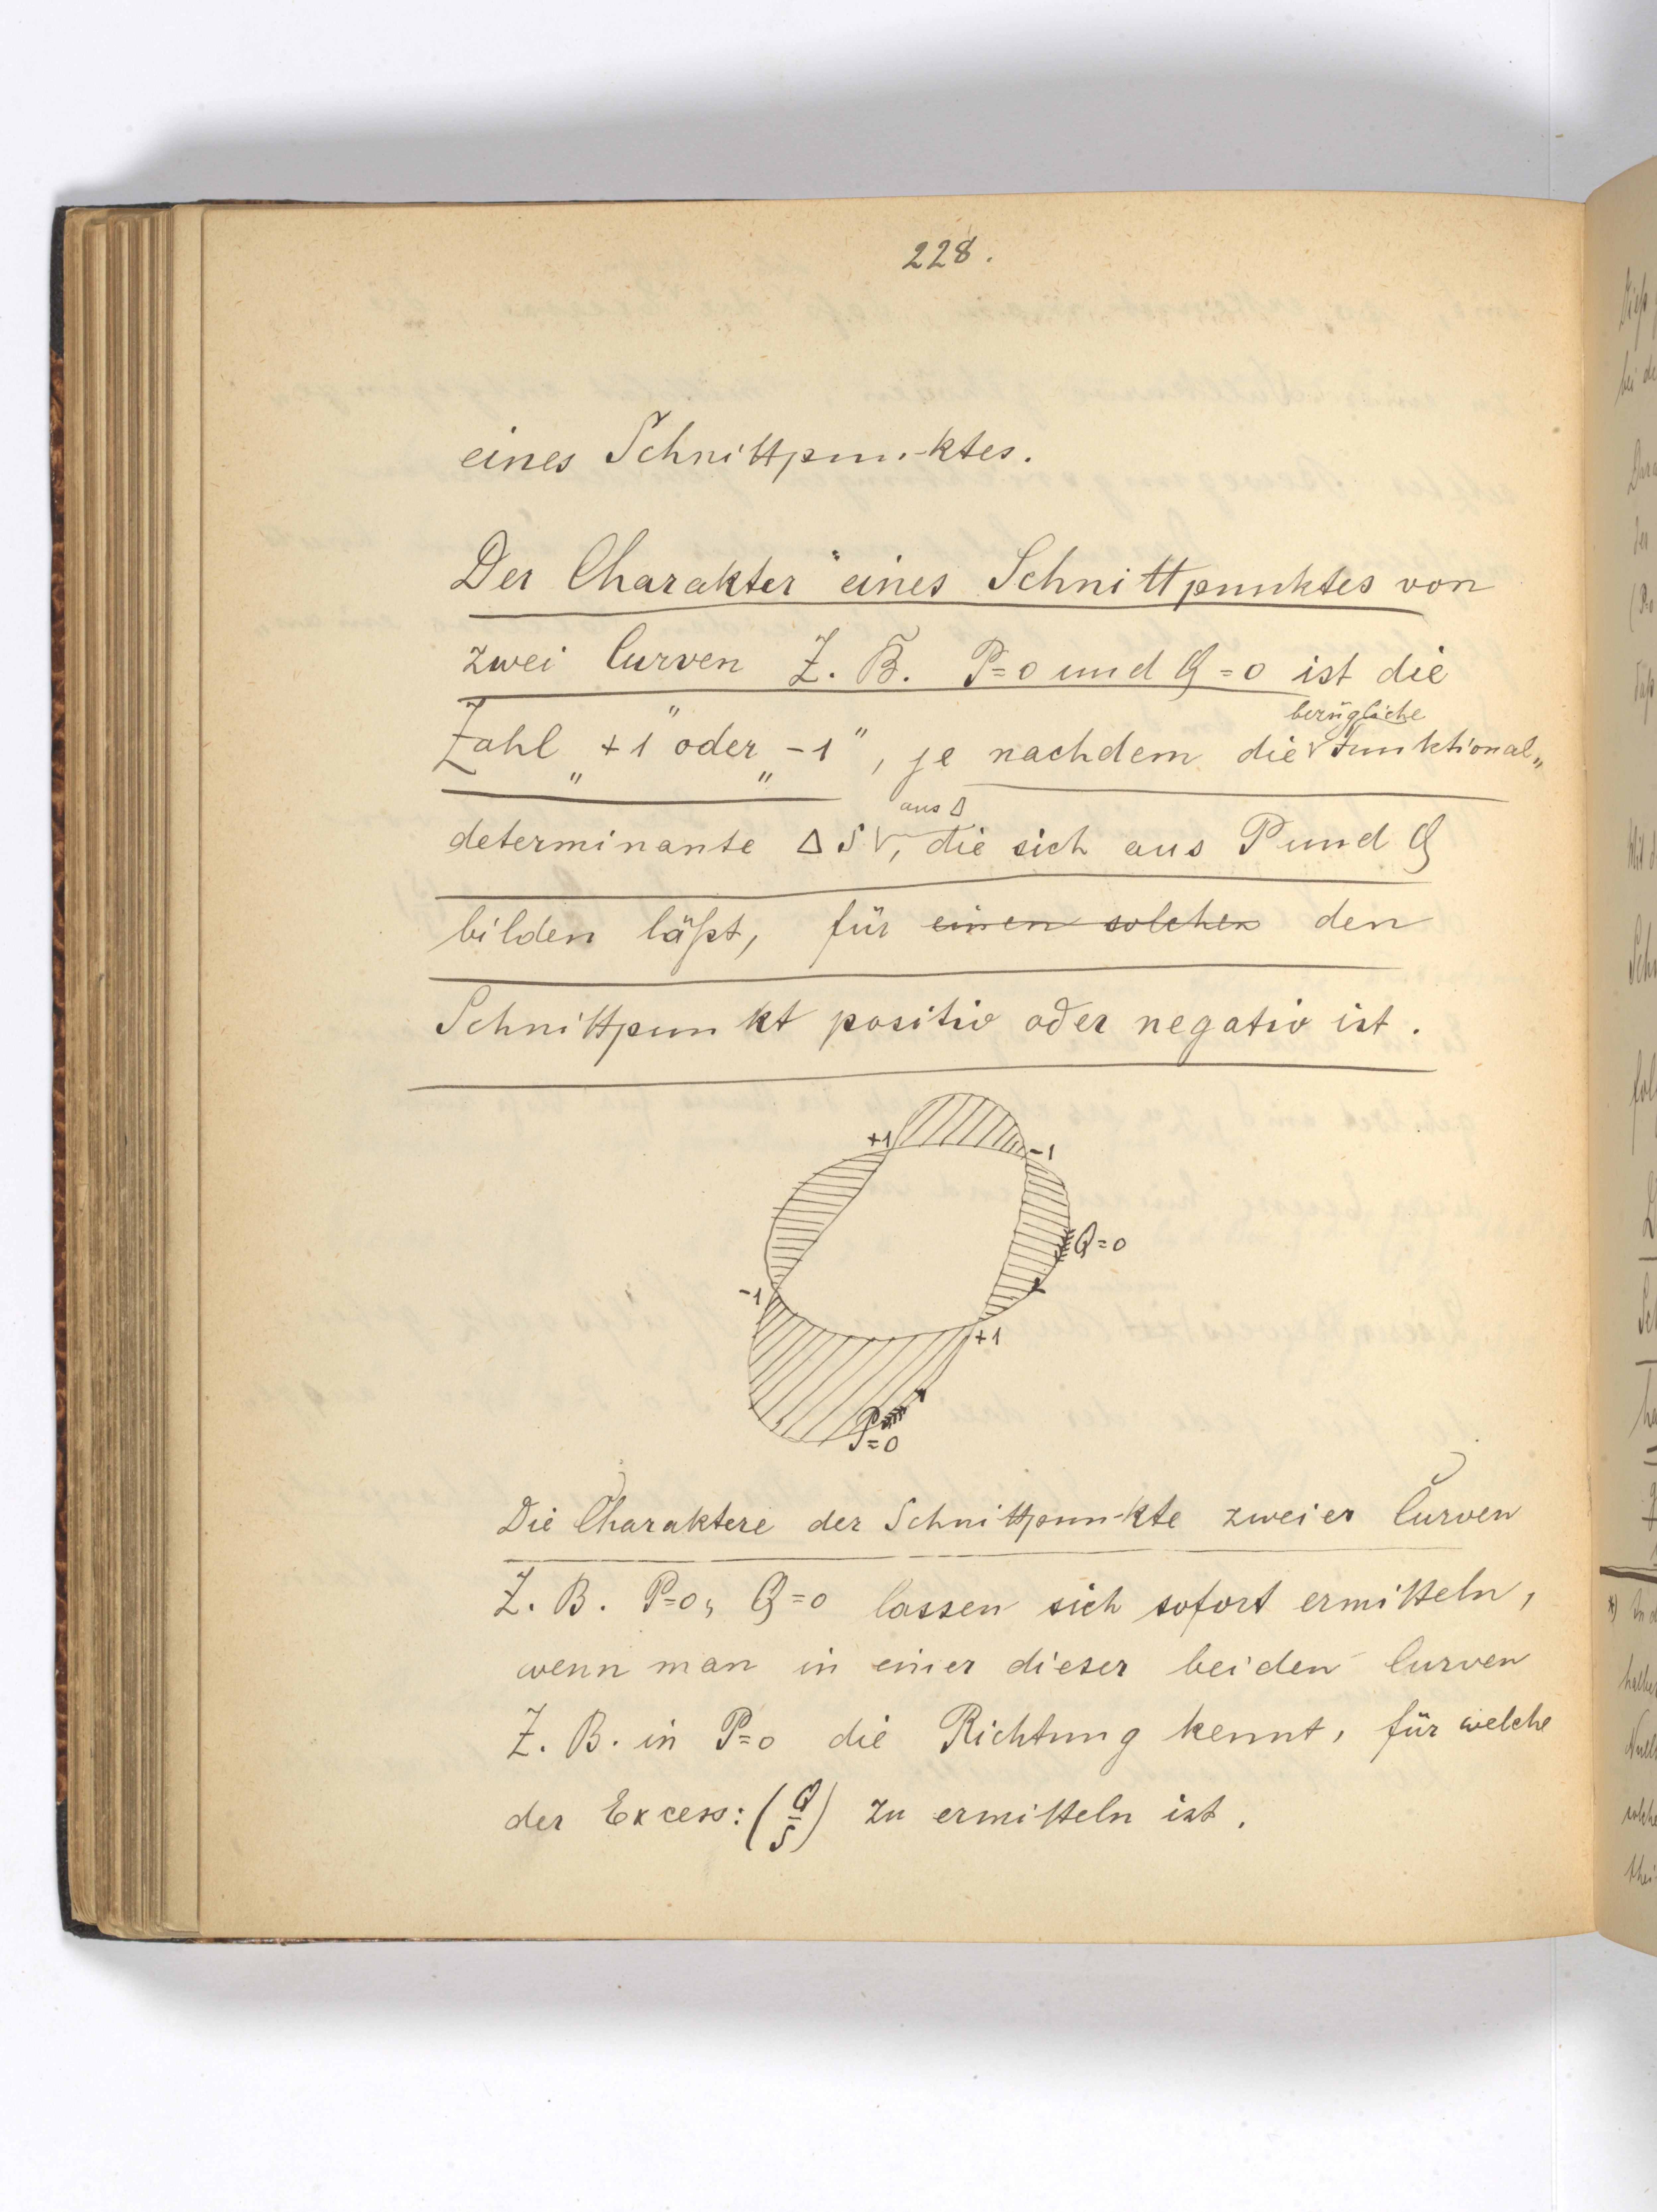 228.
eines Schnittpunktes.
Der Charakter eines Schnittpunktes von
zwei Curven Z. B. P=0 und Q=0 ist die
bezügliche
Zahl „+1" oder „-1", je nachdem die Funktional„
aus Δ
determinante Δ S, die sich aus P und Q
bilden läßt, für einen solchen den
Schnittpunkt positiv oder negativ ist.
+1
-1
Q=0
-1
+1
P=0
Die Charaktere der Schnittpunkte zweier Curven
Z. B. P=0, Q=0 lassen sich sofort ermitteln,
wenn man in einer dieser beiden Curven
Z. B. in P=0 die Richtung kennt, für welche
der Excess: (Q/S) zu ermitteln ist.